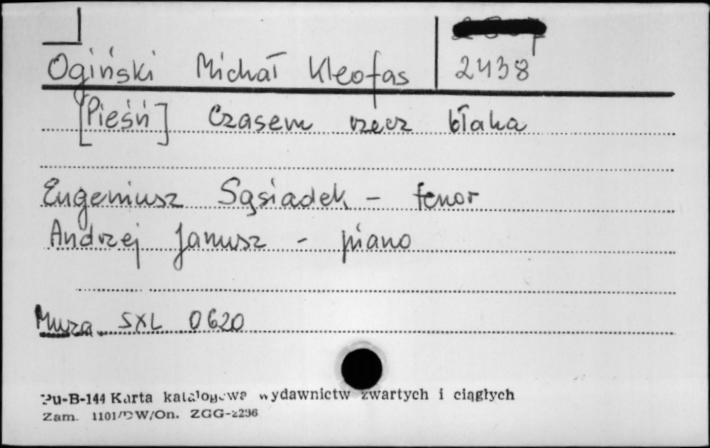 Ogiński Michał Kleofas 2438
[Pieśń] Czasem rzecz błaha
Eugeniusz Sąsiadek - tenor
Andrzej Janusz - piano
Muza SXL 0620
Pu-B-144 Karta katalogowa wydawnictw zwartych i ciągłych
Zam. 1101/DW/On. ZGG-2296